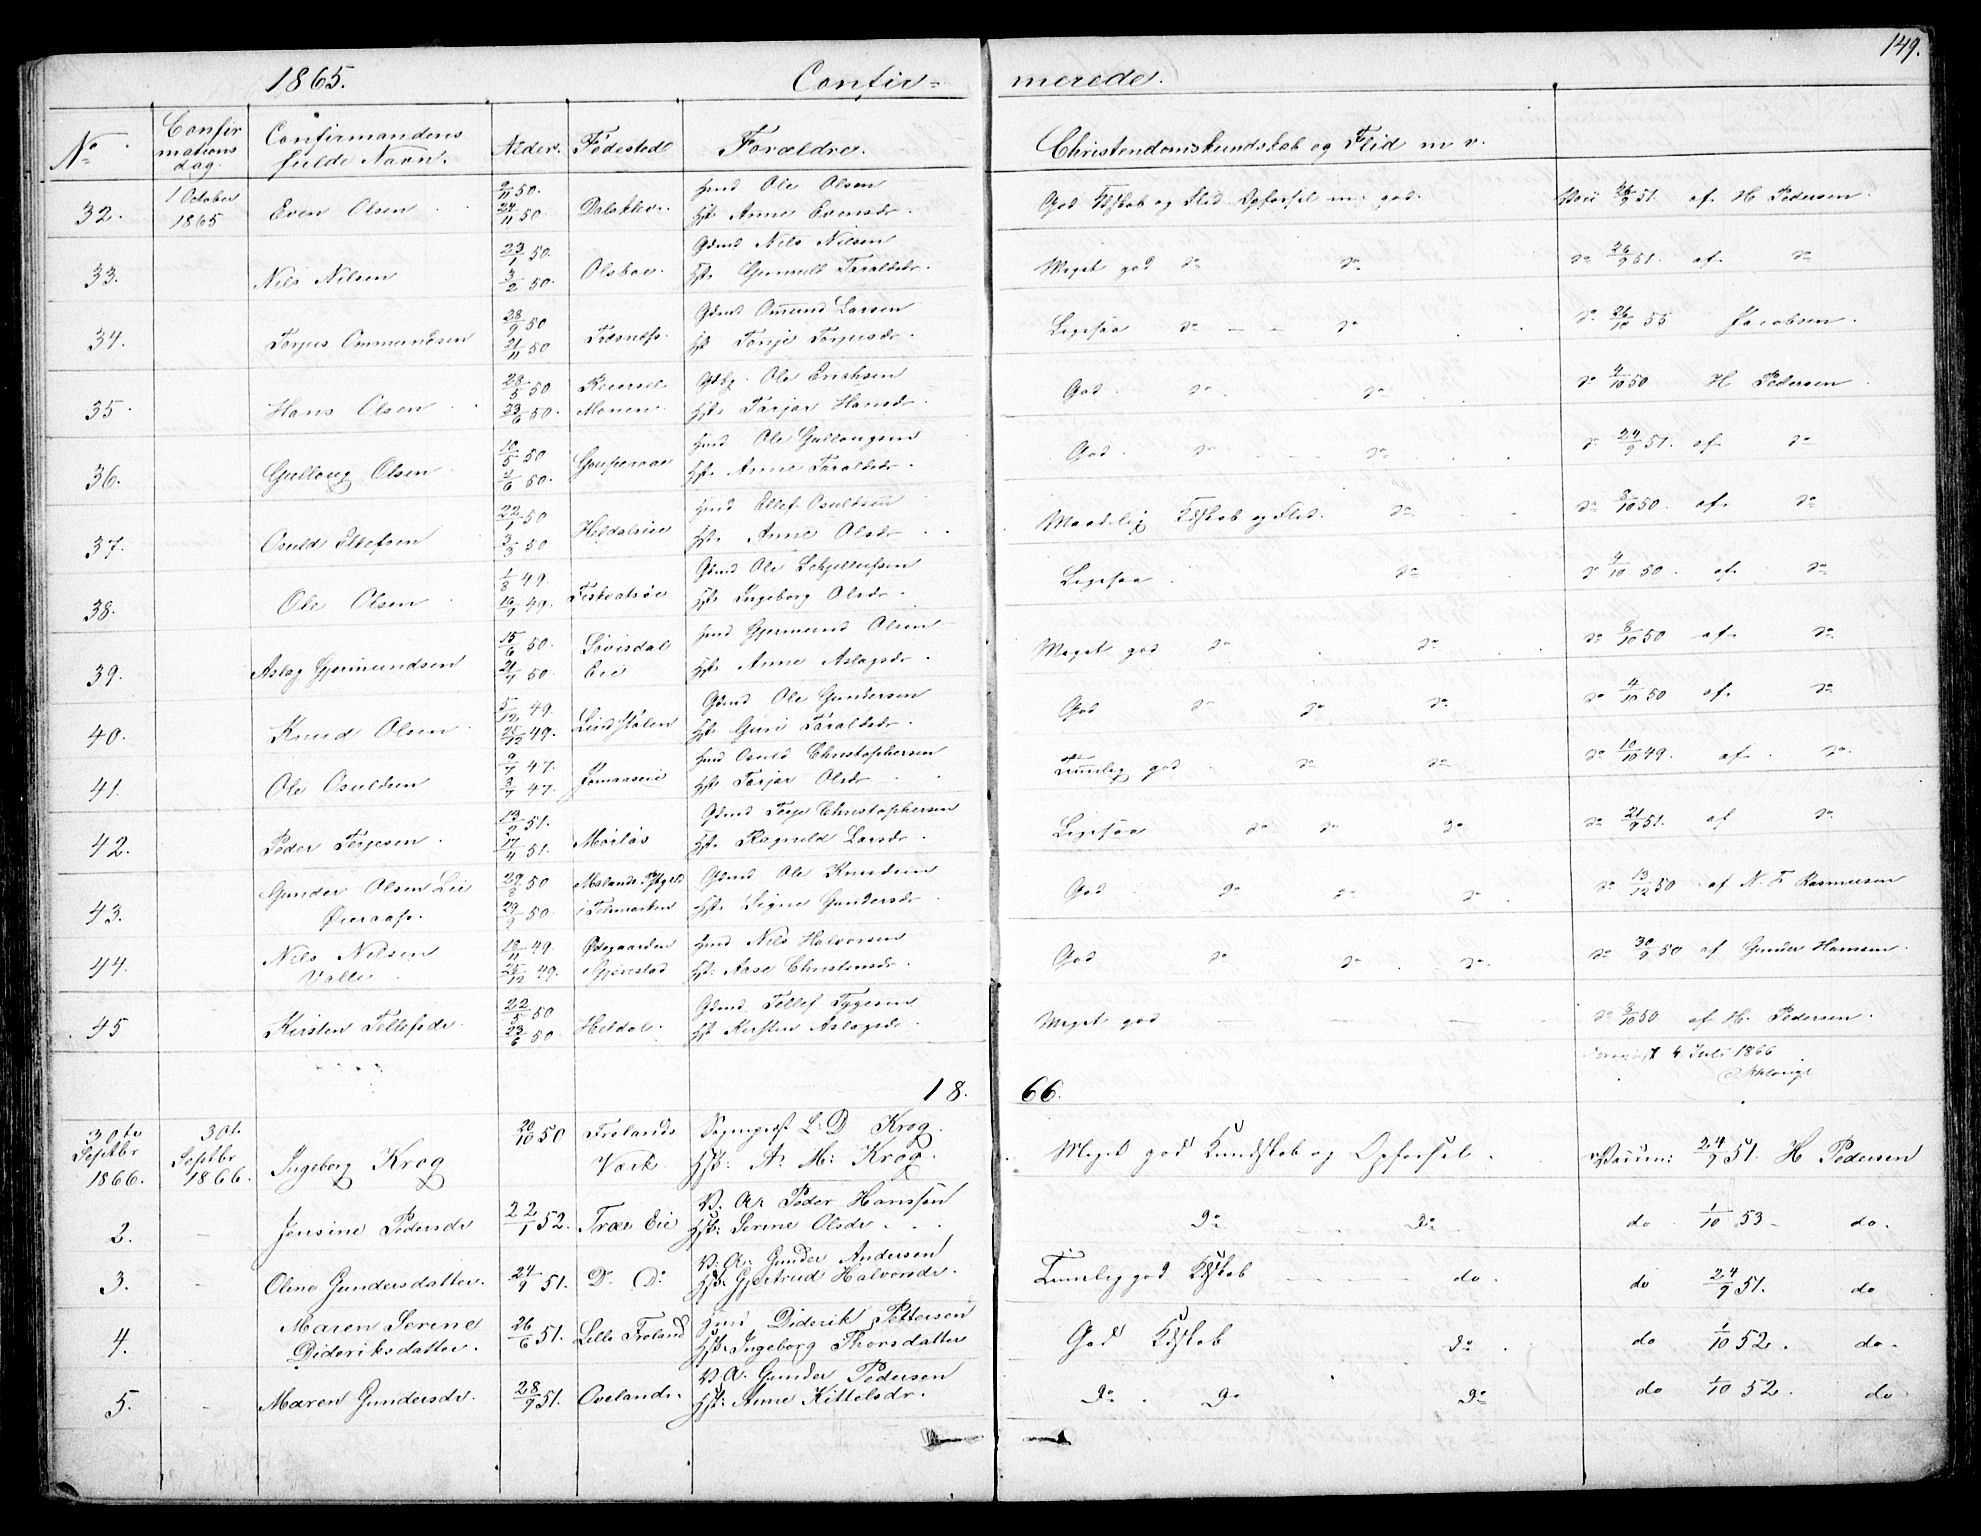 149.
1865. Confir= merede.
No. Confirmations dag. Confirmandens fulde Navn. Alder. Fødested Forældre. Christendomskundskab og Flid m. v.
32. 1 October 1865 Even Olsen 9/11 50. 24/11 50. Dalsklev. Hmd Ole Olsen
Hst. Anne Evensdr. God Kdskab og Flid. Opførsel m: god. Vac 26/9 51. af H Pedersen.
33. Nils Nilsen 23/1 50. 3/2 50. Olsboe. Gdmd Nils Nilsen
Hst. Gunnuld Taraldsdr. Meget god do do do 26/9 51. af do
34. Torjus Ommundsen 28/9 50 21/11 50 Tresnæs. Gdmd Omund Larsen
Hst. Tonje Torjusdr. Ligesaa do - - do do 26/10 55 Jacobsen.
35. Hans Olsen 28/5 50 23/6 50. Reiersel Monen. Ole Erichsen
Hst. Torjer Hansdr. God. do do do 4/10 50 H Pedersen
36. Gulloug Olsen 10/5 50 2/6 50. Hmd Ole Gullougsen
Hst. Anne Taraldsdr. God. do do do 24/9 51. af do
37. Osuld Ellefsen 22/1 50 3/3 50 Heldalseie Hmd Ellef Osuldsen
Hst. Anne Olsdr Maadelig Kdskab og Flid. do do 8/10 50. af do
38. Ole Olsen 1/8 49. 16/9 49. Gdmd Ole
Hst. Ingeborg Olsdr. Ligesaa do do 4/10 50. af do
39. Aslag Gjermundsen 15/6 50. 21/7 50 Løvisdal Eie Hmd Gjermund Olsen
Hst. Anne Aslagsdr. Meget god do do do 8/10 50 af do
40. Knud Olsen 5/12 49. 25/12 49. Lindstølen Gdmd Ole Gundersen
Hst. Guri Taraldsdr. God do do do do 4/10 50 af do
41. Ole Osuldsen 9/7 47. 47. Tomaaseie Hmd Osuld Christophersen
Hst. Torjer Olsdr Temlig god do do do 10/10 49. af do
42. Peder Terjesen. 13/2 51. 17/4 51. Mørløs Gdmd Terje Christophersen
Hst. Ragnild Larsdr. Ligesaa do do do do 21/9 51. af do
43. Gunder Olsen Lie Øieraas. 29/ 50 29/ 50. i Telemarken Gdmd Ole Knudsen
Hst. Signe Gundersdr God do do do do 13/12 50 af N. T Rasmusen
44. Nils Nilsen Valle 10/11 49. 25/12 49. Ødegaarden i Gjerestad Hmd Nils Halvorsen
Hst: Aase Christensdr. God do do do do 30/9 50 af Gunder Hansen.
45 Kirsten Tellefsdr. 22/5 50 23/6 50. Heldal. Gdmd Tellef Tygesen
Hst Kirsten Aslagsdr. Meget god do 8/10 50 af H. Pedersen.
4 Juli 1866
18. 66.
30te Septbr 1866. 30t. Septbr 1866. Ingeborg Krog 20/10 50 Frolands Værk. Sognepræst L. D Krog.
Hst: A. M: Krog. Meget god Kundskab og Opførsel. Vaccin: 24/9 51. H Pedersen
2. Jensine Pedersdr 22/1 52. Træe Eie V. Ar Peder Hanssen
Hst: Serine Olsdr. do do do 1/10 53 do.
3. Oline Gundersdatter. 24/9 51. Do Do V: A: Gunder Andersen
Hst: Gjertrud Halvorsdr. Temlig god Kdskab do. do 24/9 51. do
4. Maren Serine Dideriksdatter. 26/6 51. Lille Froland Hmd Diderik Pettersen
Hst: Ingeborg Thorsdatter God Kdskab do do 1/10 52. do.
5. Maren Gundersdr. 28/9 51. Ovelands. V. A. Gunder Pedersen
Hst: Anne Kittelsdr. do. do do do 1/10 52. do